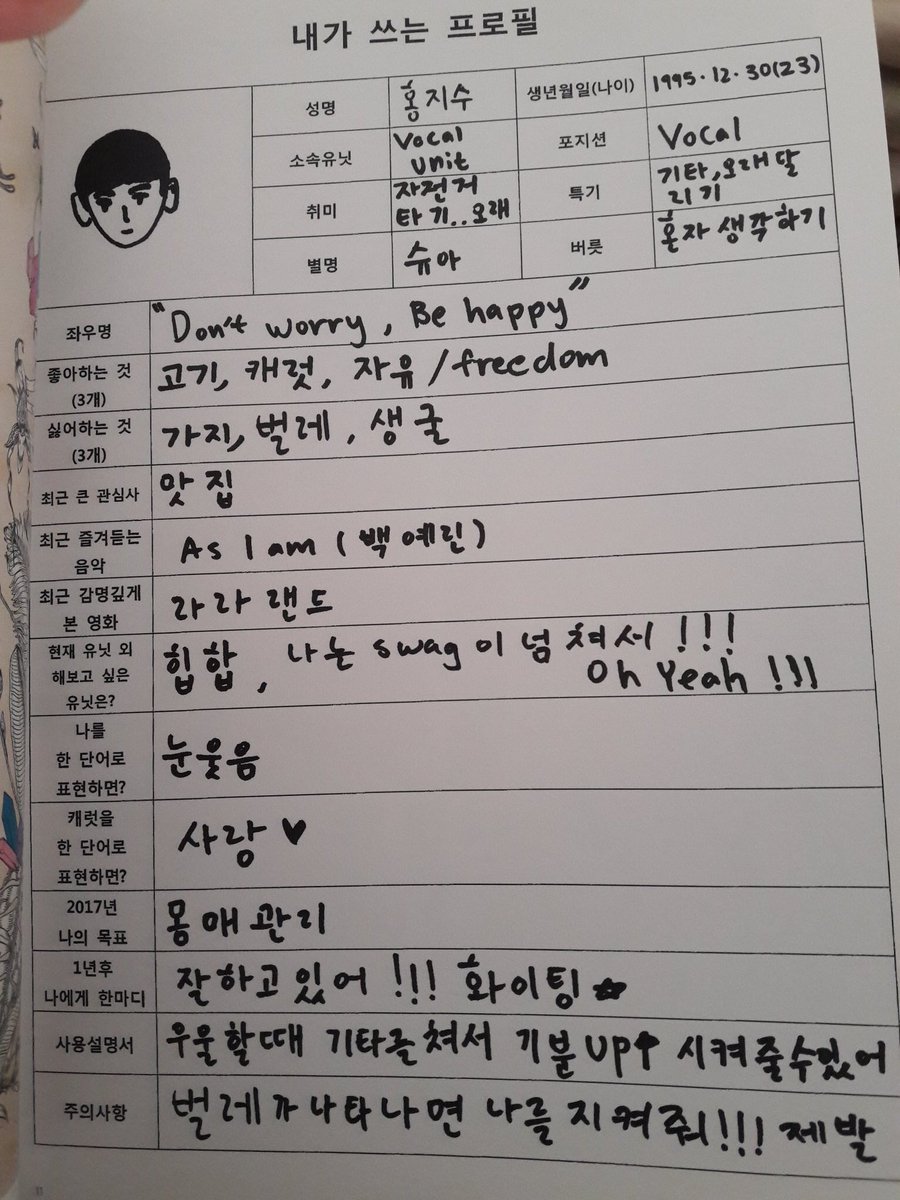 내가 쓰는 프로필
성명 홍지수 생년월일(나이) 1995.12.30(23)
소속유닛 Vocal unit 포지션 Vocal
취미 자전거 타기..오래 특기 기타,오래달리기
별명 슈아 버릇 혼자 생각하기
좌우명 "Don't worry, Be happy"
좋아하는 것 (3개) 고기, 캐럿, 자유/freedom
싫어하는 것 (3개) 가지, 벌레, 생굴
최근 큰 관심사 맛집
최근 즐겨듣는 음악 As I am (백예린)
최근 감명깊게 본 영화 라라랜드
현재 유닛 외 해보고 싶은 유닛은? 힙합, 나는 swag이 넘쳐서!!! Oh Yeah!!!
나를 한 단어로 표현하면? 눈웃음
캐럿을 한 단어로 표현하면? 사랑♥
2017년 나의 목표 몸매관리
1년후 나에게 한마디 잘하고있어!!! 화이팅☆
사용설명서 우울할때 기타를쳐서 기분UP↑ 시켜줄수있어
주의사항 벌레가 나타나면 나를 지켜줘!!! 제발
11